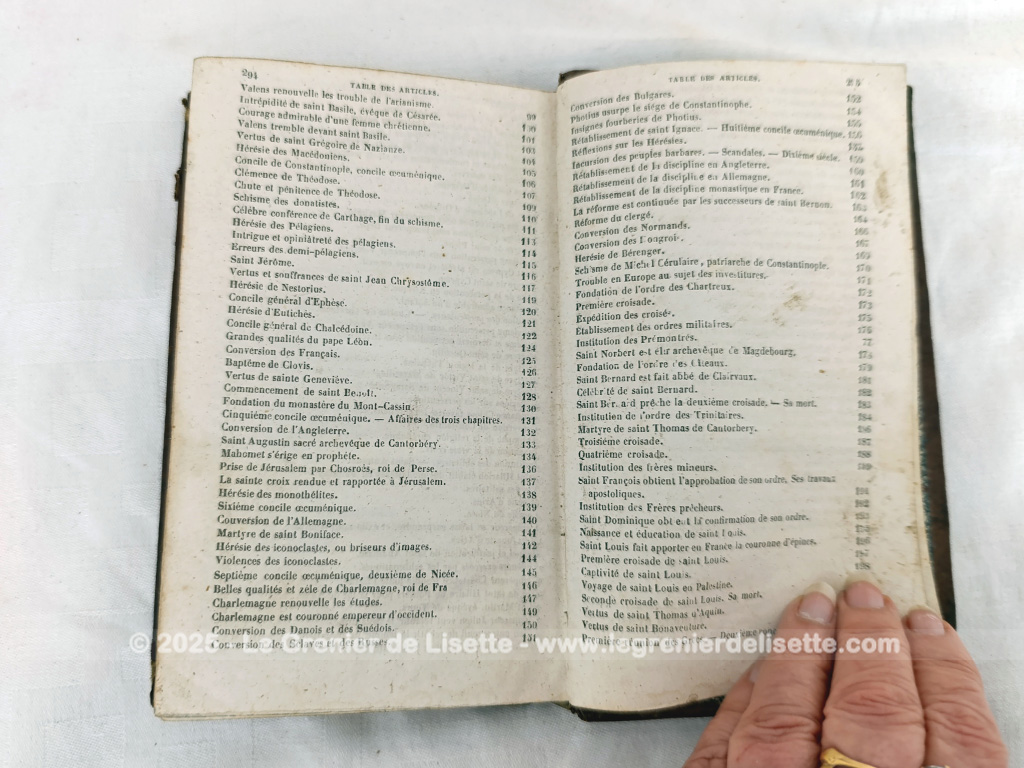 294
TABLE DES ARTICLES.
Valens renouvelle les trouble de l'arianisme. 99
Intrépidité de saint Basile, évêque de Césarée. 100
Courage admirable d'une femme chrétienne. 101
Valens tremble devant saint Basile. 103
Vertus de saint Grégoire de Nazianze. 104
Hérésie des Macédoniens. 105
Concile de Constantinople, concile œcuménique. 106
Clémence de Théodose. 107
Chute et pénitence de Théodose. 109
Schisme des donatistes. 110
Célèbre conférence de Carthage, fin du schisme. 111
Hérésie des Pélagiens. 113
Intrigue et opiniâtreté des pélagiens. 114
Erreurs des demi-pélagiens. 115
Saint Jérôme. 116
Vertus et souffrances de saint Jean Chrysostôme. 117
Hérésie de Nestorius. 119
Concile général d'Ephèse. 120
Hérésie d'Eutichès. 121
Concile général de Chalcédoine. 122
Grandes qualités du pape Léon. 124
Conversion des Français. 125
Baptême de Clovis. 126
Vertus de sainte Geneviève. 127
Commencement de saint Benoît. 128
Fondation du monastère du Mont-Cassin. 130
Cinquième concile œcuménique. — Affaires des trois chapitres. 131
Conversion de l'Angleterre. 132
Saint Augustin sacré archevêque de Cantorbéry. 133
Mahomet s'érige en prophète. 134
Prise de Jérusalem par Chosroès, roi de Perse. 136
La sainte croix rendue et rapportée à Jérusalem. 137
Hérésie des monothélites. 138
Sixième concile œcuménique. 139
Conversion de l'Allemagne. 140
Martyre de saint Boniface. 141
Hérésie des iconoclastes, ou briseurs d'images. 142
Violences des iconoclastes. 144
Septième concile œcuménique, deuxième de Nicée. 145
Belles qualités et zèle de Charlemagne, roi de Fra 146
Charlemagne renouvelle les études. 147
Charlemagne est couronné empereur d'occident. 149
Conversion des Danois et des Suédois. 150
Conversion des Sclaves et des Russes 151
TABLE DES ARTICLES.
Conversion des Bulgares. 152
Photius usurpe le siége de Constantinople. 154
Insignes fourberies de Photius. 155
Rétablissement de saint Ignace. — Huitième concile œcuménique. 156
Réflexions sur les Hérésies.
Incursion des peuples barbares. — Scandales. — Dixième siècle.
Rétablissement de la discipline en Angleterre.
Rétablissement de la discipline en Allemagne. 161
Rétablissement de la discipline monastique en France. 162
La réforme est continuée par les successeurs de saint Bernon. 163
Réforme du clergé. 164
Conversion des Normands. 166
Conversion des Hongrois. 167
Herésie de Bérenger. 169
Schisme de Michel Cérulaire, patriarche de Constantinople. 170
Trouble en Europe au sujet des investitures. 171
Fondation de l'ordre des Chartreux. 172
Première croisade. 173
Expédition des croisés. 175
Établissement des ordres militaires. 176
Institution des Prémontrés. 77
Saint Norbert est élu archevêque de Magdebourg. 178
Fondation de l'ordre des Citeaux. 179
Saint Bernard est fait abbé de Clairvaux. 181
Célébrité de saint Bernard. 182
Saint Bernard prêche la deuxième croisade. — Sa mort. 183
Institution de l'ordre des Trinitaires. 184
Martyre de saint Thomas de Cantorbery. 186
Troisième croisade. 187
Quatrième croisade. 188
Institution des frères mineurs. 189
Saint François obtient l'approbation de son ordre. Ses travaux
apostoliques. 191
Institution des Frères prêcheurs. 192
Saint Dominique obtient la confirmation de son ordre. 193
Naissance et éducation de saint Louis.
Saint Louis fait apporter en France la couronne d'épines. 196
Première croisade de saint Louis. 197
Captivité de saint Louis. 198
Voyage de saint Louis en Palestine.
Seconde croisade de saint Louis. Sa mort.
Vertus de saint Thomas d'Aquin.
Vertus de saint Bonaventure.
Première réunion
© 2025 - Le Grenier de Lisette - www.legrenierdelisette.com